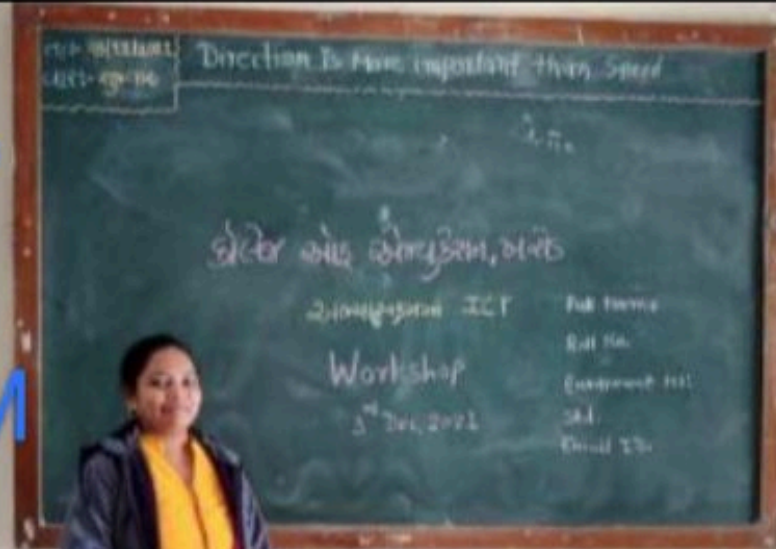 તા:-
વાર:-
Direction Is More important than Speed
કોલેજ ઓફ એજ્યુકેશન,
અભ્યાસક્રમમાં ICT
Workshop
3rd Dec, 2021
Full Name
Roll No.
Enrolment No.
Std.
Email ID.
M